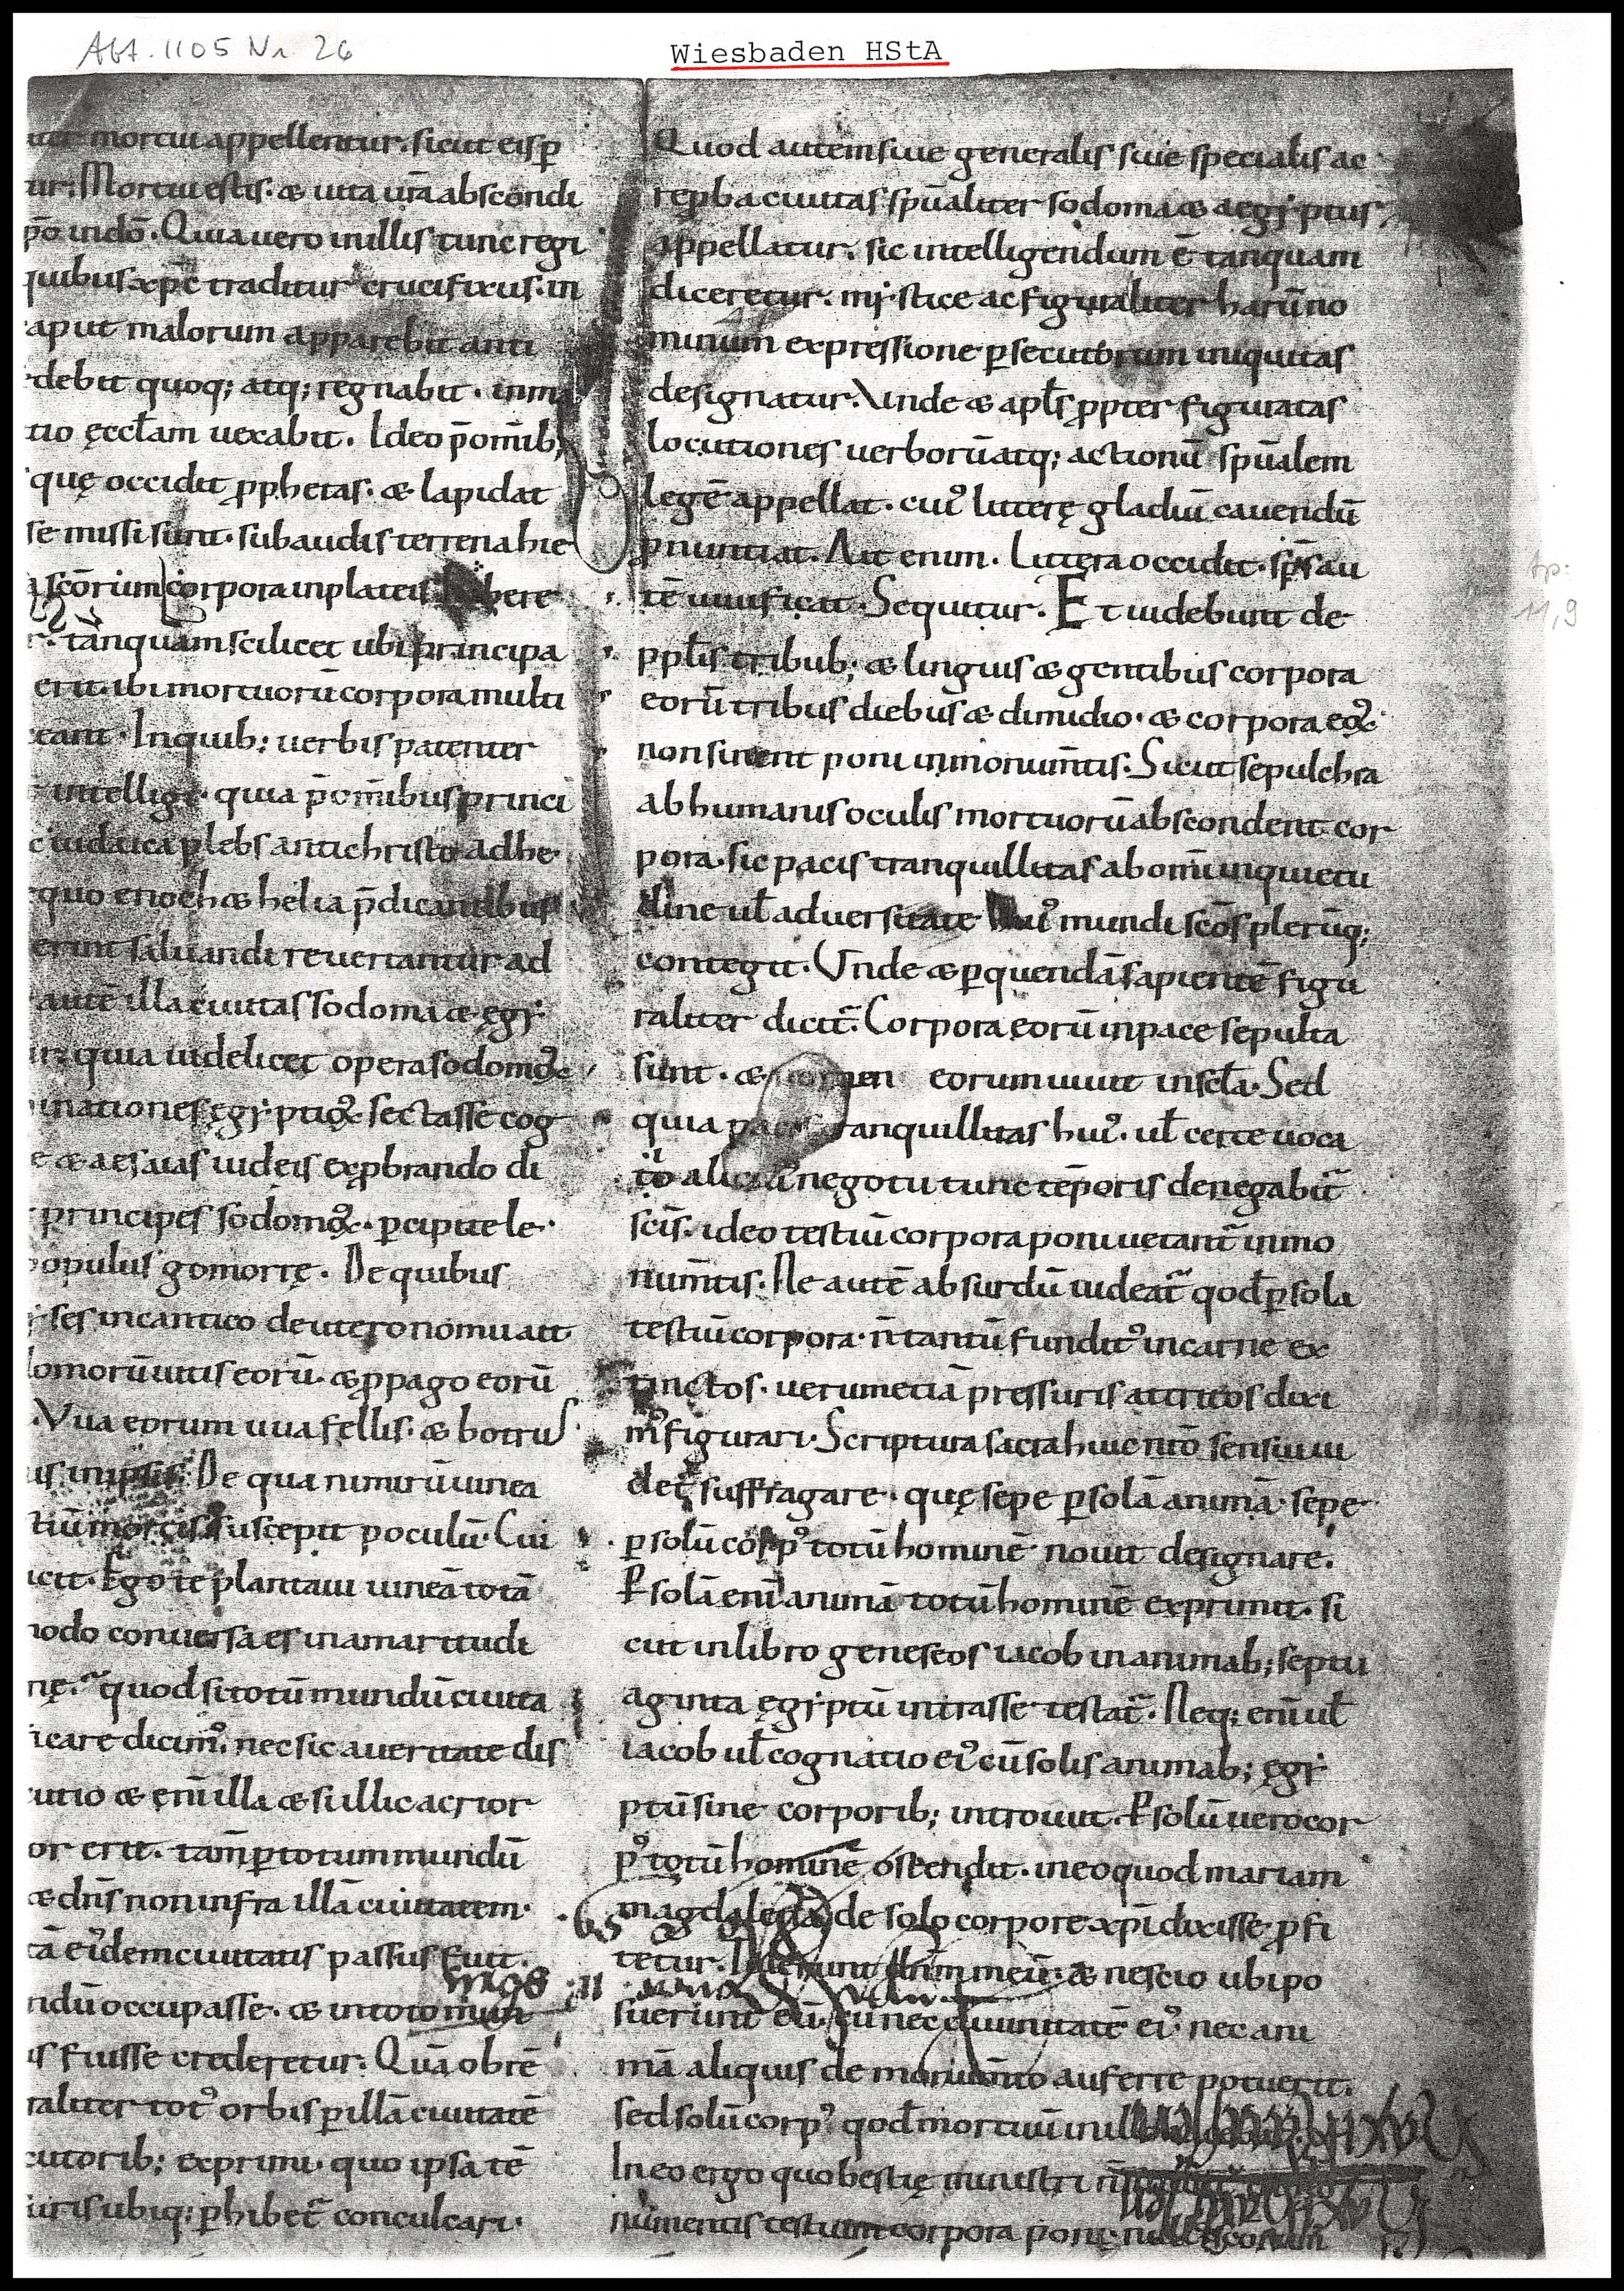 Abt. 1105 Nr. 26
Wiesbaden HStA
mortui appellentur. sicut eis ꝑ
ur; Mortui estis. & uita ur̄a abscondi
p̄o indō. Quia uero in illis tunc regi
quibus xp̄c traditur crucifixus. in
aput malorum apparebit anti
debit quoq; atq; regnabit. in
tio ęccl̄am uexabit. Ideo p̄ om̄ib;
quę occidit ꝓphetas. & lapidat
se missi sunt. subaudis terrena hie
scōrum corpora in plateis
r. tanquam scilicet ubi principa
erit. ibi mortuorū corpora multi
eant. In quib; uerbis patenter
intelligi. quia p̄ om̄ibus princi
iudaica plebs antichristo adhe
quo enoch & helia p̄dicantibus
erint saluandi reuertantur ad
autē illa ciuitas sodoma & ęgi
quia uidelicet opera sodomoꝝ
inationes ęgyptioꝝ sectasse cog
e & aesaias iudeis exꝓbrando di
principes sodomoꝝ. ꝑcipite le
populus gomorrę. De quibus
ses in cantico deuteronomii ait
omorū uitis eorū. & ꝓpago eorū
Vua eorum uua fellis. & botrus
is in ipsis. De qua nimirū uinea
tiū mortis suscepit poculū. Cui
icit. Ego te plantaui uineā totā
modo conuersa es in amaritudi
quod si totū mundū ciuita
icare dicim᷒. nec sic a ueritate dis
utio & eni illa & si illic acrior
or erit. tam̄ ꝑ totum mundū
& dn̄s non infra illā ciuitatem.
tā ei᷒dem ciuitatis passus fuit.
ndū occupasse. & in toto
is fuisse crederetur. Quā ob rē
raliter tot᷒ orbis ꝑ illā ciuitatē
cutorib; exprimi. quo ipsa tē
uris ubiq; ꝑhibet᷒ conculcari.
Quod autem siue generalis siue specialis ac
reꝓba ciuitas spūaliter sodoma & aegyptus
appellatur. sic intelligendum ē tanquam
diceretur. mystice ac figuraliter harū no
minum expressione ꝑsecutorum iniquitas
designatur. Vnde & apl̄s ꝓpter figuratas
locutiones uerborū atq; actionū spūalem
legē appellat. cui᷒ litterę gladiū cauendū
ꝓnuntiat. Ait enim. Littera occidit. sp̄s au
tē uiuificat. Sequitur. Et uidebunt de
ppl̄is tribub; & linguis & gentibus corpora
eorū tribus diebus & dimidio. & corpora eoꝝ
non sinent poni in monum̄tis. Sicut sepulchra
ab humanis oculis mortuorū abscondent cor
pora. sic pacis tranquillitas ab om̄i inquietu
dine ul̄ aduersitate hui᷒ mundi scōs plerūq;
contegit. Vnde & ꝑ quendā sapientē figu
raliter dicit᷒. Corpora eorū in pace sepulta
sunt. & nomen eorum uiuit in scl̄a. Sed
quia pacis tranquillitas hui᷒. ul̄ certe uoca
tio negotii tunc tēporis denegabit᷒
scīs. ideo testiū corpora poni uetant᷒ in mo
num̄tis. Ne autē absurdū uideat᷒ qod ꝑ sola
testiū corpora. n̄ tantū fundit᷒ in carne ex
tinctos. uerum etiā pressuris attritos dixi
m᷒ figurari. Scriptura sacra huic nr̄o sensui ui
det᷒ suffragare. quę sepe ꝑ solā animā. sepe
ꝑ solū corp᷒ totū hominē nouit designare.
Ꝑ solā eni animā totū hominē exprimit. si
cut in libro geneseos iacob in animab; septu
aginta ęgyptū intrasse testat᷒. Neq; eni ul̄
iacob ul̄ cognatio ei᷒ cū solis animab; ęgy
ptū sine corporib; introiuit. Ꝑ solū uero cor
p᷒ totū hominē ostendit. in eo quod mariam
magdalenā de solo corpore xp̄i dixisse ꝓfi
tetur. dn̄m meū. & nescio ubi po
suerunt eū. cū nec diuinitatē ei᷒. nec ani
mā aliquis de auferre potuerit.
sed solū corp᷒ qod mortuū in
In eo ergo quo bestię ministri
numentis testium corpora poni
Ap:
11,9